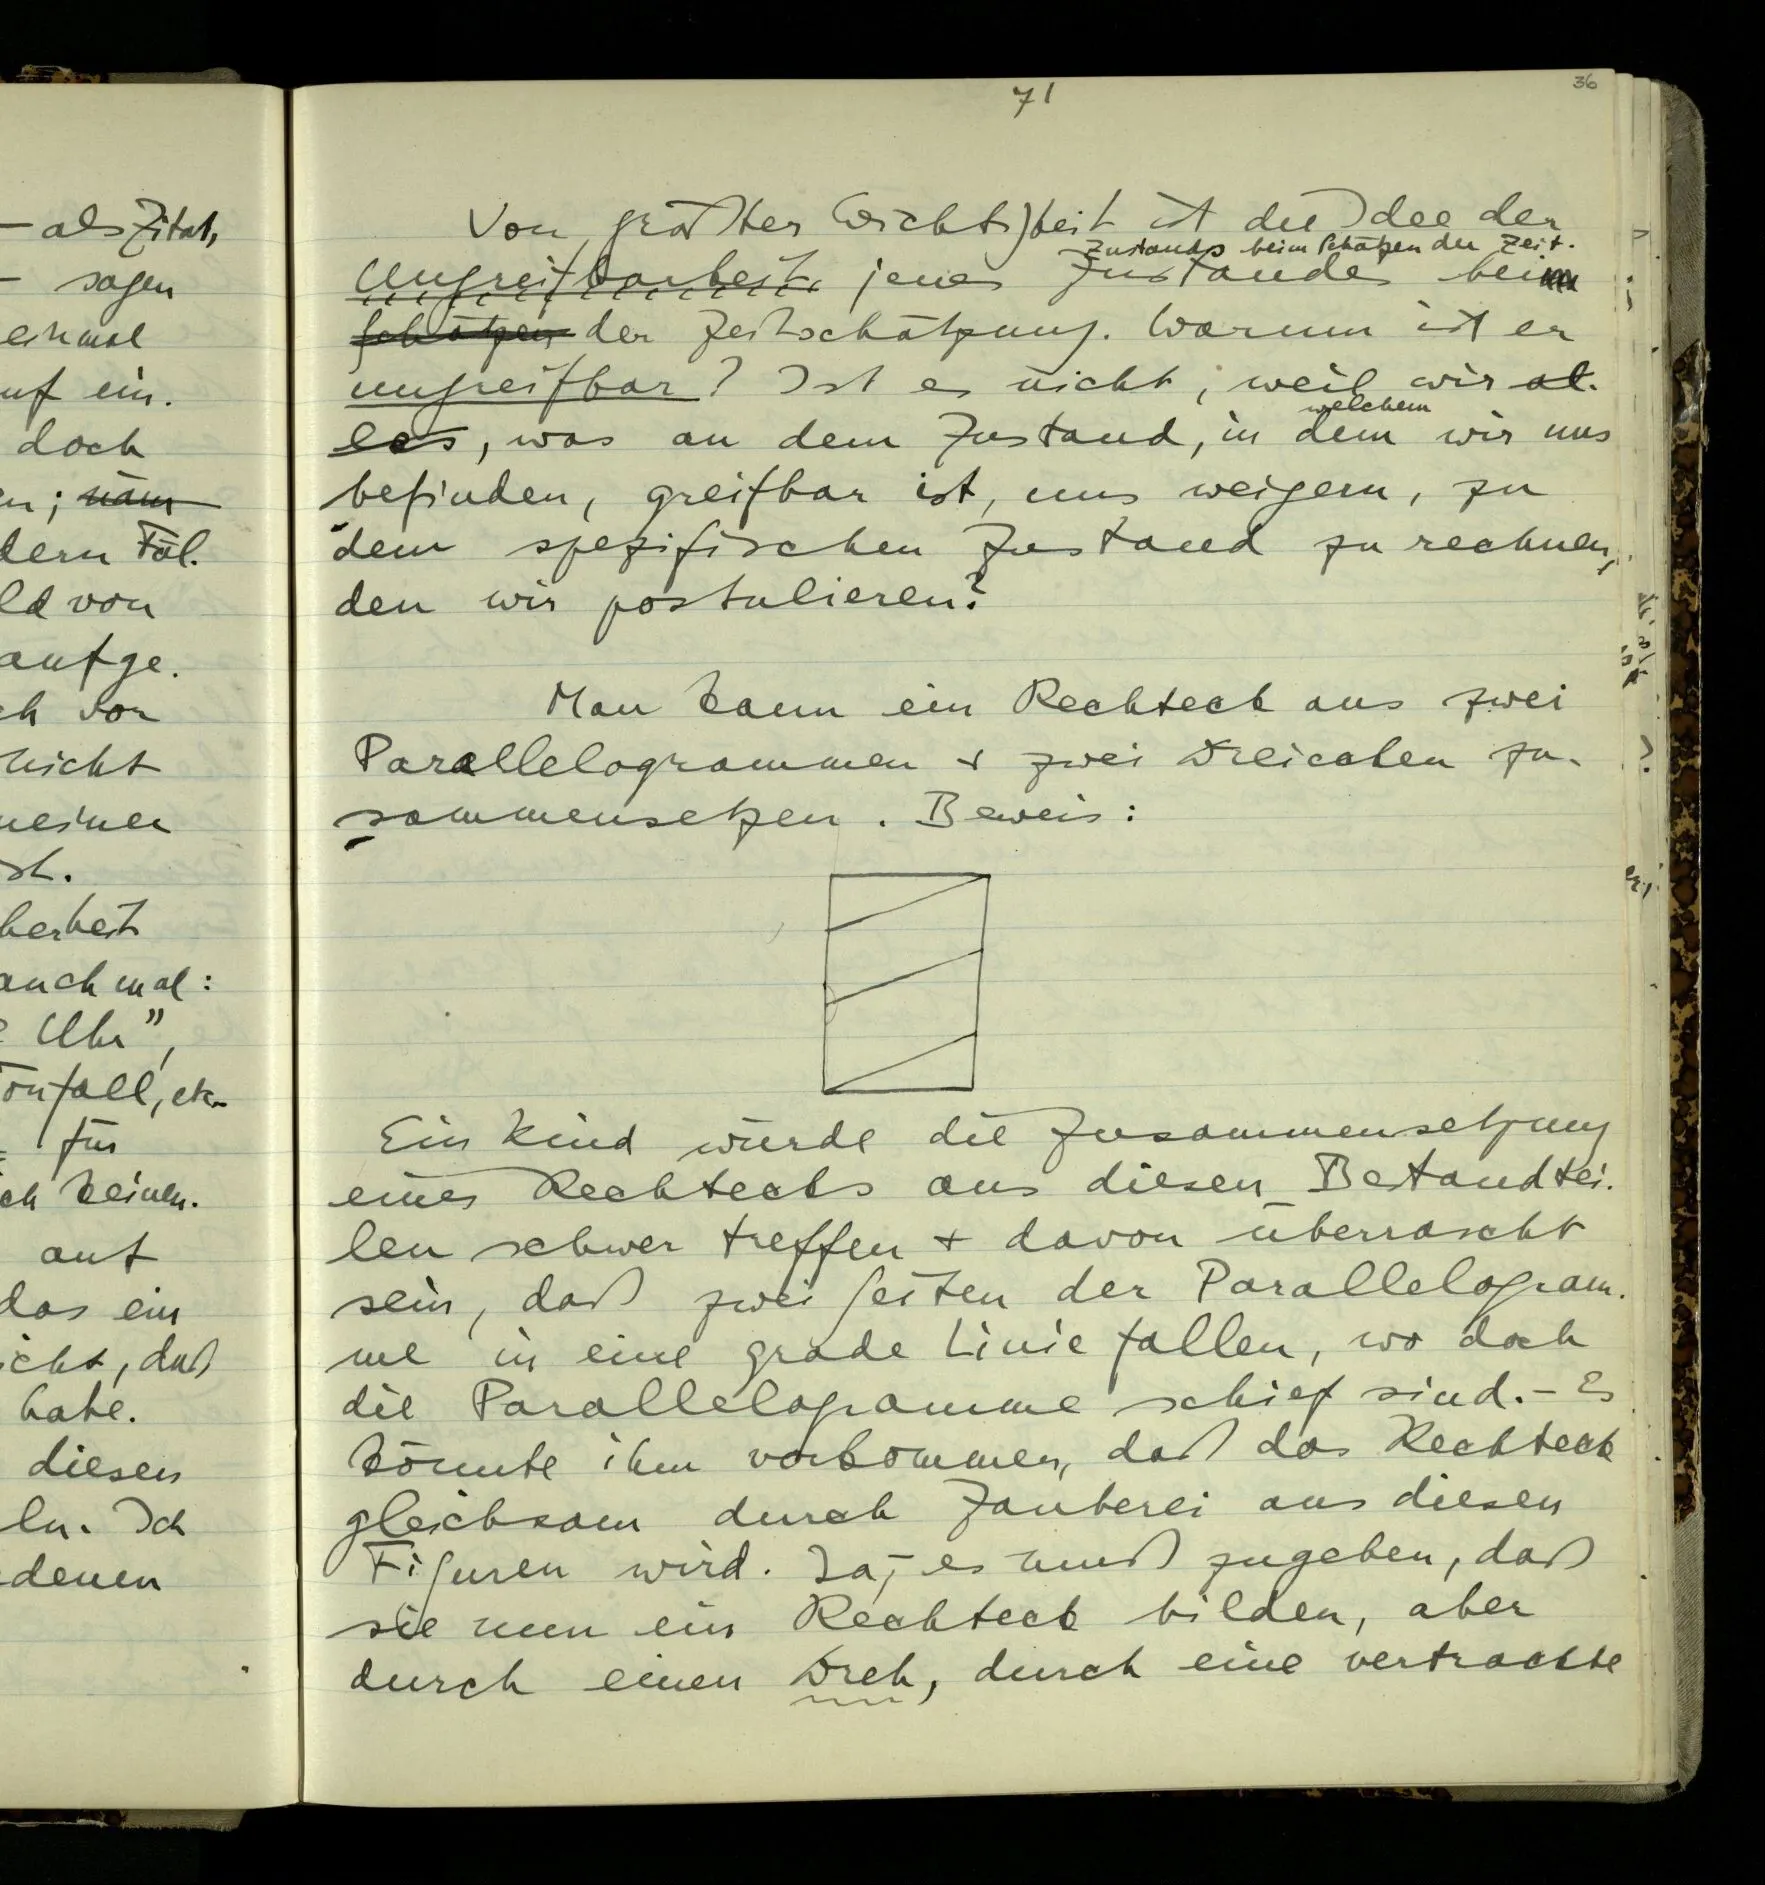 – als Zitat,
– sagen
einmal
auf ein.
doch
en; näm
dern Fäl-
ld von
aufge-
ch vor
nicht
meiner
st.
herheit
manchmal:
Uhr”,
Tonfall, etc.
für
ich keinen.
auf
das ein
icht, daß
habe.
diesen
ln. Ich
denen
71
36
Von größter Wichtigkeit ist die Idee der
Zustands beim Schätzen der Zeit.
Ungreifbarkeit jenes Zustandes beim
Schätzen der Zeitschätzung. Warum ist er
ungreifbar? Ist es nicht, weil wir al-
welchem
les, was an dem Zustand, in dem wir uns
befinden, greifbar ist, uns weigern, zu
dem spezifischen Zustand zu rechnen,
den wir postulieren?
Man kann ein Rechteck aus zwei
Parallelogrammen + zwei Dreiecken zu-
sammensetzen. Beweis:
Ein Kind würde die Zusammensetzung
eines Rechtecks aus diesen Bestandtei-
len schwer treffen + davon überrascht
sein, daß zwei Seiten der Parallelogram-
me in eine grade Linie fallen, wo doch
die Parallelogramme schief sind. – Es
könnte ihm vorkommen, daß das Rechteck
gleichsam durch Zauberei aus diesen
Figuren wird. Ja, es muß zugeben, daß
sie nun ein Rechteck bilden, aber
durch einen Dreh, durch eine vertrackte